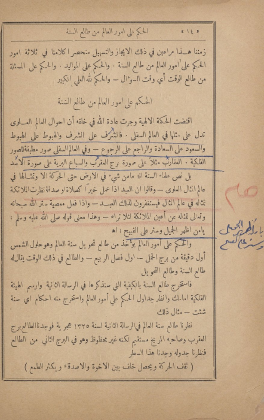 ﴿ ١٤ ﴾ الحكم على امور العالم من طالع السنة
زمننا هذا مراعين في ذلك الايجاز والتسهيل منحصر اكلامنا في ثلاثة امور
الحكم على امور العالم من طالع السنة . والحكم على المواليد . والحكم على المسئلة
من طالع الوقت أي وقت السؤال — والحكم لله العلي الكبير
الحكم على امور العالم من طالع السنة
اقتضت الحكمة الالهية وجرت عادة الله في خلقه أن احوال العالم العلوى
تدل على مثلها في العالم السفلي . فالشرف على الشرف والهبوط على الهبوط
والسعود على السعادة والراجع على الرجوع — وفي العالم السفلي صور مطابقة للصور
الفلكية . فالعقارب مثلا على صورة برج العقرب والسباع البرية على صورة الاسد
بل نص علماء السنة انه مامن شيء في الارض حتى الحركة الا ولشكلها في
عالم المثال العلوى — وقالوا ان العبد اذا عمل خيرا كصلاة او صدقة نظرت الملائكة
لمثاله في عالم المثال فيستغفرون لذلك العبد — واذا فعل معصية ستر الله سبحانه
وتعالى لمثاله عن أعين الملائكة لئلا تراه — وهذا معنى قوله صلى الله عليه وسلم (
يامن اظهر الجميل وستر على القبيح )
والحكم على امور العالم يؤخذ من طالع تحويل سنة العالم وهو حلول الشمس
أول دقيقة من برج الحمل — اول فصل الربيع — والطالع في ذلك الوقت يقال له
طالع السنة وطالع التحويل
فاستخرج طالع السنة بالكيفية التي سنذكرها في الرسالة الثانية وارسم الهيئة
الفلكية امامك وانظر جداول الحكم على امور العالم واستخرج منه احكام اي سنة
شئت — مثال ذلك
نظرنا طالع سنة العالم في الرسالة الثانية لسنة ١٣٣٥ هجرية فوجدنا الطالع برج
العقرب وصاحبه المريخ مستقيم لكنه غير محظوظ وهو في البرج الثاني من الطالع
فنظرنا جدوله وجدنا هذا السطر
( تقف الحركة ويحصل خلف بين الاخوة والاصدقاء ويكثر الطمع )